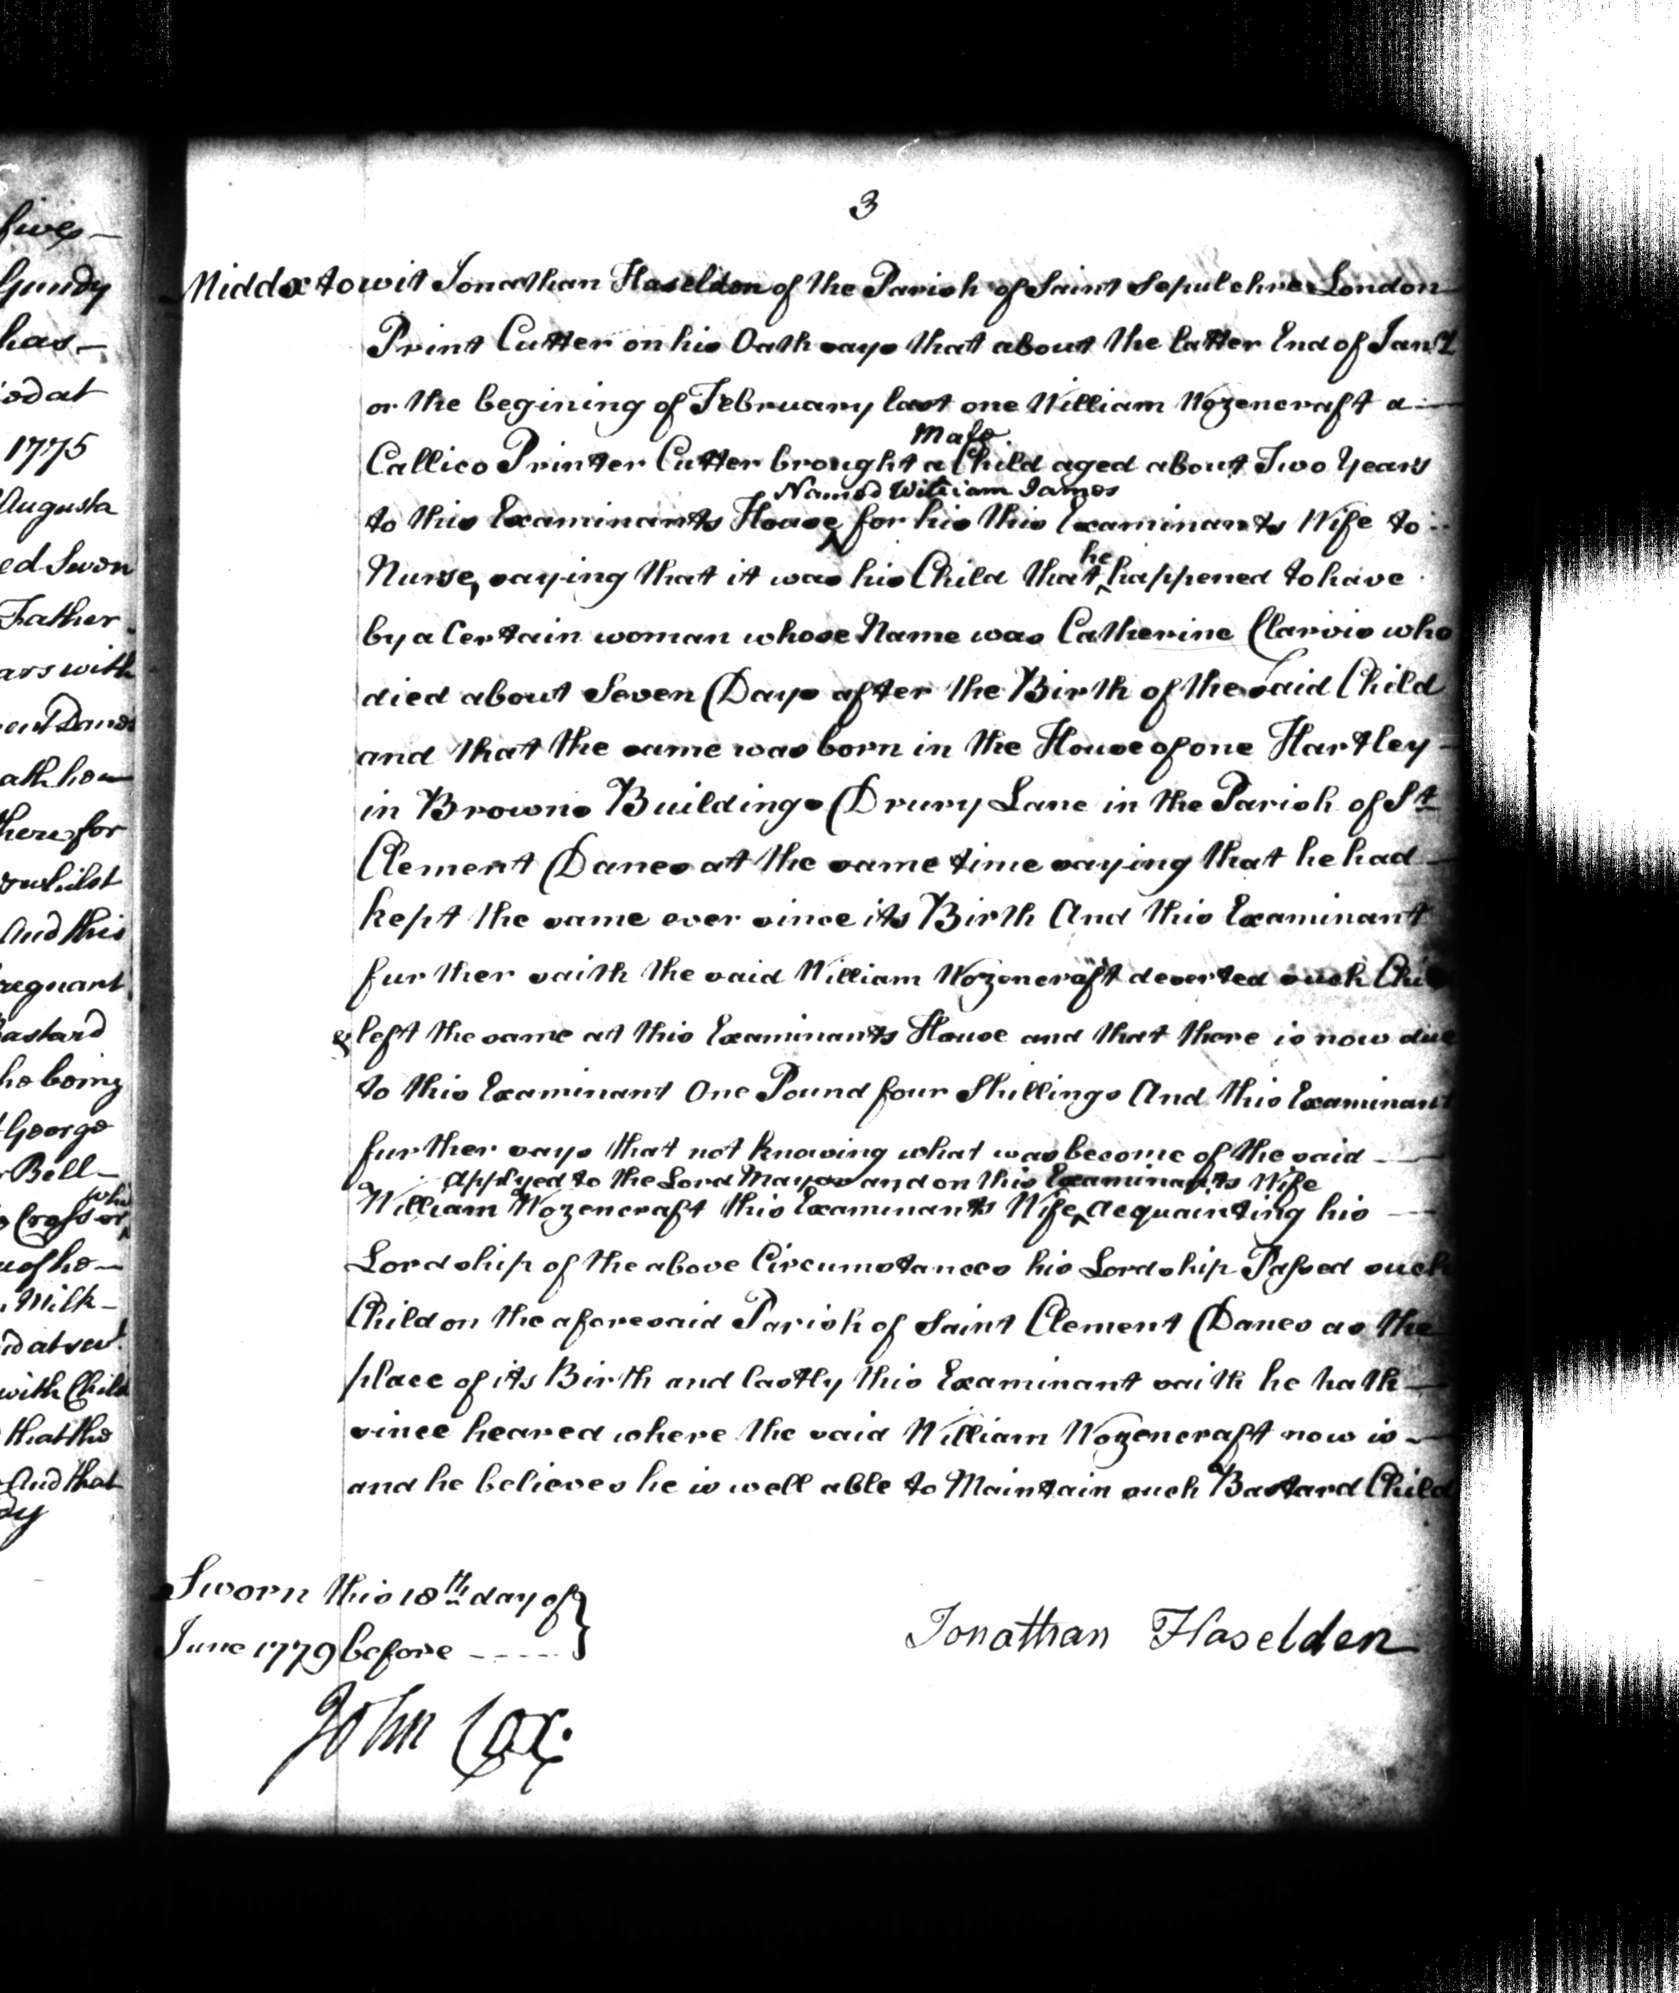 3
Middx to wit Jonathan Haselden of the Parish of Saint Sepulchre London
Print Cutter on his Oath says that about the latter End of Jan.y
or the begining of February last one William Wozencraft a
Male
Callico Printer Cutter brought a Child aged about Two Years
Named William James
to this Examinants House ^ for his this Examinants Wife to
he
Nurse, saying that it was his Child that ^ happened to have
by a Certain woman whose Name was Catherine Clarvis who
died about Seven Days after the Birth of the Said Child
and that the same was born in the House of one Hartley
in Browns Buildings Drury Lane in the Parish of St
Clement Danes at the same time saying that he had
kept the same ever since its Birth And this Examinant
further saith the said William Wozencraft deserted such
& left the same at this Examinants House and that there is now due
to this Examinant One Pound four Shillings And this Examinant
further says that not knowing what was become of the said
Applyed to the Lord Mayor and on this Examinants Wife
William Wozencraft this Examinants Wife ^ acquainting his
Lordship of the above Circumstances his Lordship Passed such
Child on the aforesaid Parish of Saint Clement Danes as the
place of its Birth and lastly this Examinant saith he hath
since heared where the said William Wozencraft now is
and he believes he is well able to Maintain such Bastard Child
Sworn this 18th day of
June 1779 before
Jonathan Haselden
John Cox
fives
Gundy
has
at
1775
Augusta
Swon
Father
with
how
for
whilst
And this
Bastard
being
George
Bell
who
Cross or
Milk
with Child
that the
And that